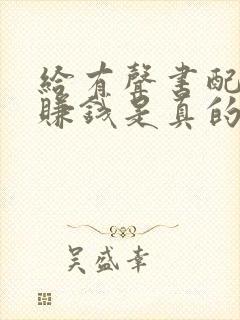 给有聲書配
賺錢是真的
吴盛幸